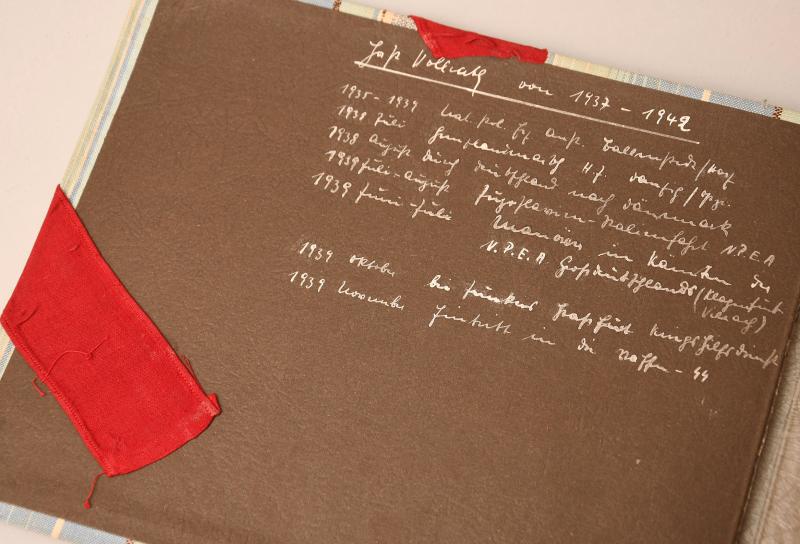 Vollrath von 1937 - 1942
1935 - 1939 Nat. pol. Erz. Anst. Ballenstedt/Harz
1938 Juli H.J. Danzig/
1938 August durch Deutschland nach Dänemark
1939 Juli - August Jugoslavien - Italienfahrt N.P.E.A
1939 Juni - Juli Manöver in Kärnten der
N.P.E.A Großdeutschlands (Klagenfurt
Villach)
1939 Oktober bei Junkers Kriegshilfsdienst
1939 November Eintritt in die Waffen - SS